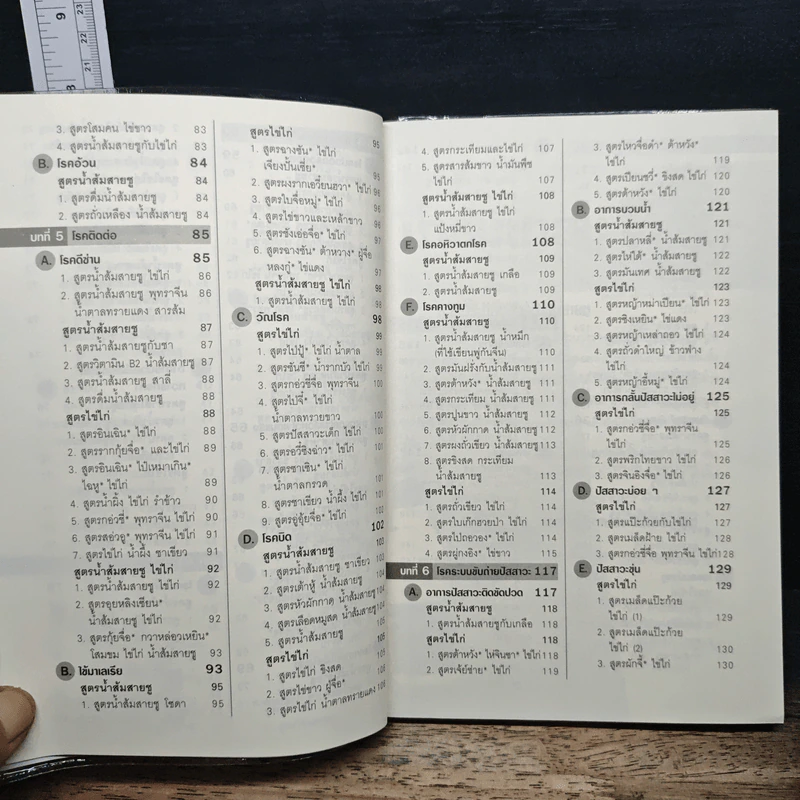 9
23
22
21
8
3. สูตรโสมคน ไข่ขาว 83
4. สูตรน้ำส้มสายชูกับไข่ไก่ 83
B. โรคอ้วน 84
สูตรน้ำส้มสายชู 84
1. สูตรดื่มน้ำส้มสายชู 84
2. สูตรถั่วเหลือง น้ำส้มสายชู 84
บทที่ 5 โรคติดต่อ 85
A. โรคดีซ่าน 85
1. สูตรน้ำส้มสายชู ไข่ไก่ 86
2. สูตรน้ำส้มสายชู พุทราจีน 86
น้ำตาลทรายแดง สารส้ม
สูตรน้ำส้มสายชู 87
1. สูตรน้ำส้มสายชูกับชา 87
2. สูตรวิตามิน B2 น้ำส้มสายชู 87
3. สูตรน้ำส้มสายชู สาลี่ 88
4. สูตรดื่มน้ำส้มสายชู 88
สูตรไข่ไก่ 88
1. สูตรอินเฉิน* ไข่ไก่ 88
2. สูตรรากกุ้ยจื่อ* และไข่ไก่ 89
3. สูตรอินเฉิน* ไป๋เหมาเกิน*
ไฉหู* ไข่ไก่ 89
4. สูตรน้ำผึ้ง ไข่ไก่ รำข้าว 90
5. สูตรกอ่วชี่* พุทราจีน ไข่ไก่ 90
6. สูตรสอ่วอู* พุทราจีน ไข่ไก่ 91
7. สูตรไข่ไก่ น้ำผึ้ง ชาเขียว 91
สูตรน้ำส้มสายชู ไข่ไก่ 92
1. สูตรน้ำส้มสายชู ไข่ไก่ 92
2. สูตรอุยหลิงเซียน*
น้ำส้มสายชู ไข่ไก่ 92
3. สูตรกุ้ยจื่อ* กวาหล่อวเหยิน*
โสมขม ไข่ไก่ น้ำส้มสายชู 93
B. ไข้มาเลเรีย 93
สูตรน้ำส้มสายชู 95
1. สูตรน้ำส้มสายชู โซดา 95
สูตรไข่ไก่ 95
1. สูตรฉางซัน* ไข่ไก่
เจียงปั้นเซี่ย*
2. สูตรผงรากเอวี๋ยนฮวา* ไข่ไก่ 96
3. สูตรใบจื่อหมู่* ไข่ไก่ 96
4. สูตรไข่ขาวและเหล้าขาว 96
5. สูตรชังเอ่อจื่อ* ไข่ไก่
6. สูตรฉางซัน* ต้าหวาง* ผู่จื่อ
หลงกู่* ไข่แดง 97
สูตรน้ำส้มสายชู ไข่ไก่ 98
1. สูตรน้ำส้มสายชู ไข่ไก่ 98
C. วัณโรค 98
สูตรไข่ไก่ 99
1. สูตรไป๋ปู้* ไข่ไก่ น้ำตาล 99
2. สูตรซันซี* น้ำรากบัว ไข่ไก่ 99
3. สูตรกอ่วชี่จื่อ พุทราจีน 99
4. สูตรไป๋จี๋* ไข่ไก่
น้ำตาลทรายขาว 100
5. สูตรปัสสาวะเด็ก ไข่ไก่ 100
6. สูตรอวี๋ซิงฉ่าว* ไข่ไก่ 100
7. สูตรซาเซิน* ไข่ไก่
น้ำตาลกรวด 101
8. สูตรชาเขียว น้ำผึ้ง ไข่ไก่ 101
9. สูตรอู่อุ้ยจื่อ* ไข่ไก่ 101
D. โรคบิด 102
สูตรน้ำส้มสายชู 103
1. สูตรน้ำส้มสายชู ชาเขียว 103
2. สูตรเต้าหู้ น้ำส้มสายชู 104
3. สูตรหัวผักกาด น้ำส้มสายชู 104
4. สูตรเลือดหมูสด น้ำส้มสายชู 104
5. สูตรน้ำส้มสายชู 105
สูตรไข่ไก่ 105
1. สูตรไข่ไก่ ขิงสด 105
2. สูตรไข่ขาว ผู่จื่อ* 105
3. สูตรไข่ไก่ น้ำตาลทรายแดง 106
4. สูตรกระเทียมและไข่ไก่ 107
5. สูตรสารส้มขาว น้ำมันพืช
ไข่ไก่ 107
สูตรน้ำส้มสายชู ไข่ไก่ 108
1. สูตรน้ำส้มสายชู ไข่ไก่
แป้งหมี่ขาว 108
E. โรคอหิวาตกโรค 108
สูตรน้ำส้มสายชู 109
1. สูตรน้ำส้มสายชู เกลือ 109
2. สูตรน้ำส้มสายชู 109
F. โรคคางทูม 110
สูตรน้ำส้มสายชู 110
1. สูตรน้ำส้มสายชู น้ำหมึก
(ที่ใช้เขียนพู่กันจีน) 110
2. สูตรมันฝรั่งกับน้ำส้มสายชู 111
3. สูตรต้าหวัง* น้ำส้มสายชู 111
4. สูตรกระเทียม น้ำส้มสายชู 111
5. สูตรปูนขาว น้ำส้มสายชู 112
6. สูตรหัวผักกาด น้ำส้มสายชู 112
7. สูตรผงถั่วเขียว น้ำส้มสายชู 113
8. สูตรขิงสด กระเทียม
น้ำส้มสายชู 113
สูตรไข่ไก่ 114
1. สูตรถั่วเขียว ไข่ไก่ 114
2. สูตรใบเก๊กฮวยป่า ไข่ไก่ 114
3. สูตรไปถอวอง* ไข่ไก่ 114
4. สูตรผู่กงอิง* ไข่ขาว 115
บทที่ 6 โรคระบบขับถ่ายปัสสาวะ 117
A. อาการปัสสาวะติดขัดปวด 117
สูตรน้ำส้มสายชู 118
1. สูตรน้ำส้มสายชูกับเกลือ 118
สูตรไข่ไก่ 118
1. สูตรต้าหวัง* ไห่จินซา* ไข่ไก่ 118
2. สูตรเจ้ย์ซ่าย* ไข่ไก่ 119
3. สูตรไหวจื่อดำ* ต้าหวัง*
ไข่ไก่ 119
4. สูตรเปียนซวี่* ขิงสด ไข่ไก่ 120
5. สูตรต้าหวัง* ไข่ไก่ 120
B. อาการบวมน้ำ 121
สูตรน้ำส้มสายชู 121
1. สูตรปลาหลี่* น้ำส้มสายชู 121
2. สูตรไห่ไต้* น้ำส้มสายชู 122
3. สูตรมันเทศ น้ำส้มสายชู 122
สูตรไข่ไก่ 123
1. สูตรหญ้าหม่าเปียน* ไข่ไก่ 123
2. สูตรซิงเหยิน* ไข่แดง 123
3. สูตรหญ้าเหล่าถอว ไข่ไก่ 124
4. สูตรถั่วดำใหญ่ ข้าวฟ่าง
ไข่ไก่ 124
5. สูตรหญ้าอี้หมู่* ไข่ไก่ 124
C. อาการกลั้นปัสสาวะไม่อยู่ 125
สูตรไข่ไก่ 125
1. สูตรกอ่วชี่จื่อ* พุทราจีน
ไข่ไก่ 125
2. สูตรพริกไทยขาว ไข่ไก่ 126
3. สูตรจินอิงจื่อ* ไข่ไก่ 126
D. ปัสสาวะบ่อย ๆ 127
สูตรไข่ไก่ 127
1. สูตรแป๊ะก้วยกับไข่ไก่ 127
2. สูตรเมล็ดฝ้าย ไข่ไก่ 128
3. สูตรกอ่วชี่จื่อ พุทราจีน ไข่ไก่ 128
E. ปัสสาวะขุ่น 129
สูตรไข่ไก่ 129
1. สูตรเมล็ดแป๊ะก้วย
ไข่ไก่ (1) 129
2. สูตรเมล็ดแป๊ะก้วย
ไข่ไก่ (2) 130
3. สูตรผักจี้* ไข่ไก่ 130